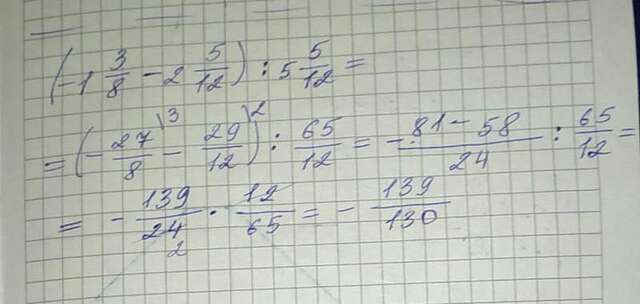 (-1 3/8 - 2 5/12) : 5 5/12 =
= (- 27/8 \3 - 29/12 \2) : 65/12 = -81-58/24 : 65/12 =
= - 139/24 2 · 12/65 = - 139/130